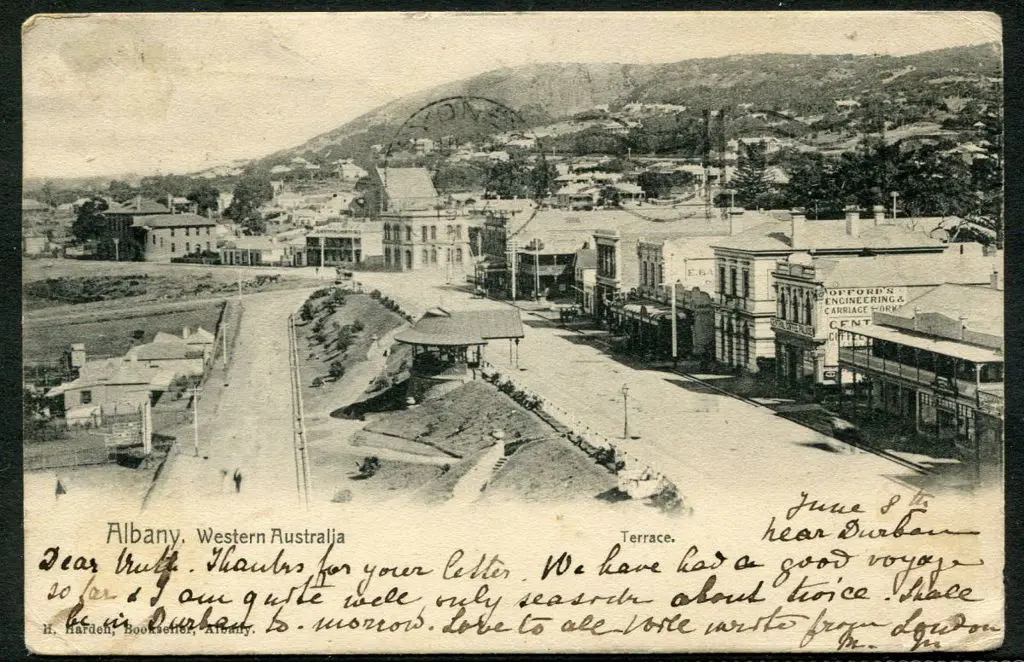 E. BA
OFFORD'S
ENGINEERING &
CARRIAGE WORKS
CENT
Albany, Western Australia
Terrace.
June 8th
near Durban
Dear Truth. Thanks for your letter. We have had a good voyage
so far & I am quite well, only seasick about twice. Shall
be in Durban to-morrow. Love to all. Will write from London
H. Harden, Bookseller, Albany.